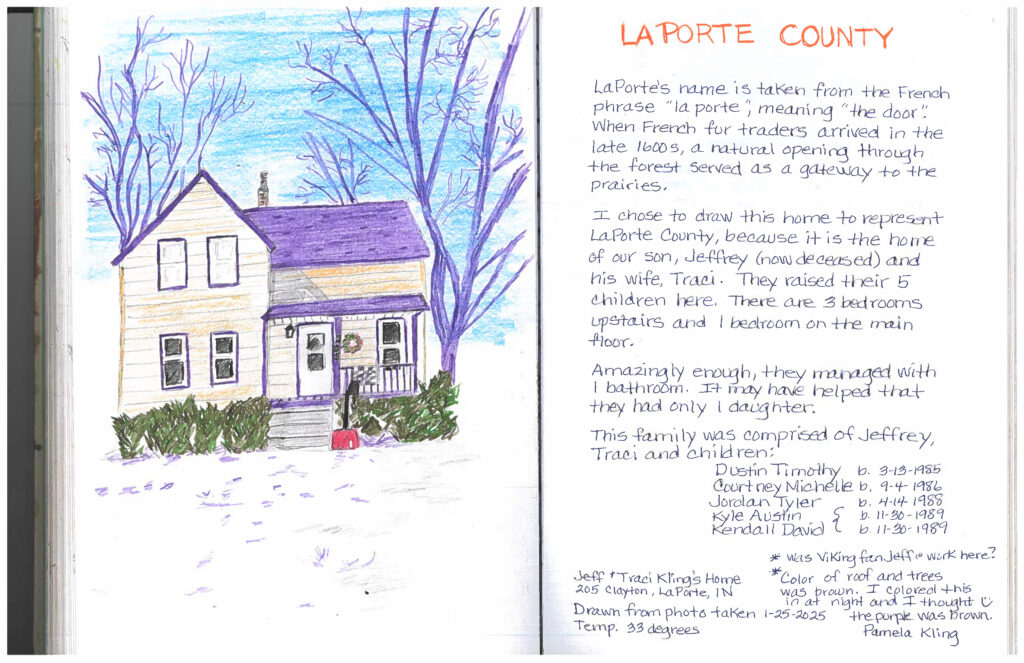 LAPORTE COUNTY
LaPorte's name is taken from the French
phrase "la porte", meaning "the door".
When French fur traders arrived in the
late 1600s, a natural opening through
the forest served as a gateway to the
prairies.
I chose to draw this home to represent
LaPorte County, because it is the home
of our son, Jeffrey (now deceased) and
his wife, Traci. They raised their 5
children here. There are 3 bedrooms
upstairs and 1 bedroom on the main
floor.
Amazingly enough, they managed with
1 bathroom. It may have helped that
they had only 1 daughter.
This family was comprised of Jeffrey,
Traci and children:
Dustin Timothy b. 3-13-1985
Courtney Michelle b. 9-4-1986
Jordan Tyler b. 4-14-1988
Kyle Austin { b. 11-30-1989
Kendall David { b. 11-30-1989
* Was Viking fan Jeff @ work here?
*Color of roof and trees
was brown. I colored this
in at night and I thought
the purple was brown.
Pamela Kling
Jeff + Traci Kling's Home
205 Clayton, LaPorte, IN
Drawn from photo taken 1-25-2025
Temp. 33 degrees